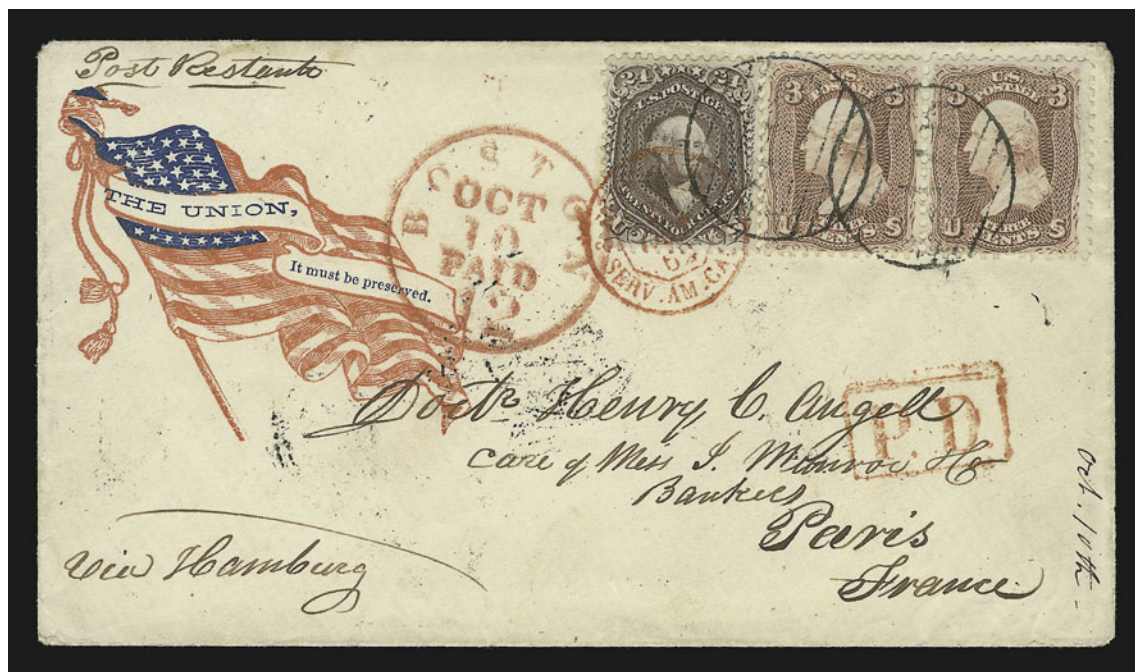 Post Restante
THE UNION,
It must be preserved.
BOSTON
OCT
10
PAID
12
24 24
U.S. POSTAGE
U S
SERV. AM. CA
3 3
U.S.
POSTAGE
THREE
CENTS
U S
3 3
U.S.
POSTAGE
THREE
CENTS
U S
P.D
Doctr Henry C. Angell
Care of Miss J. Munroe
Bankers
Paris
France
via Hamburg
Oct. 10th